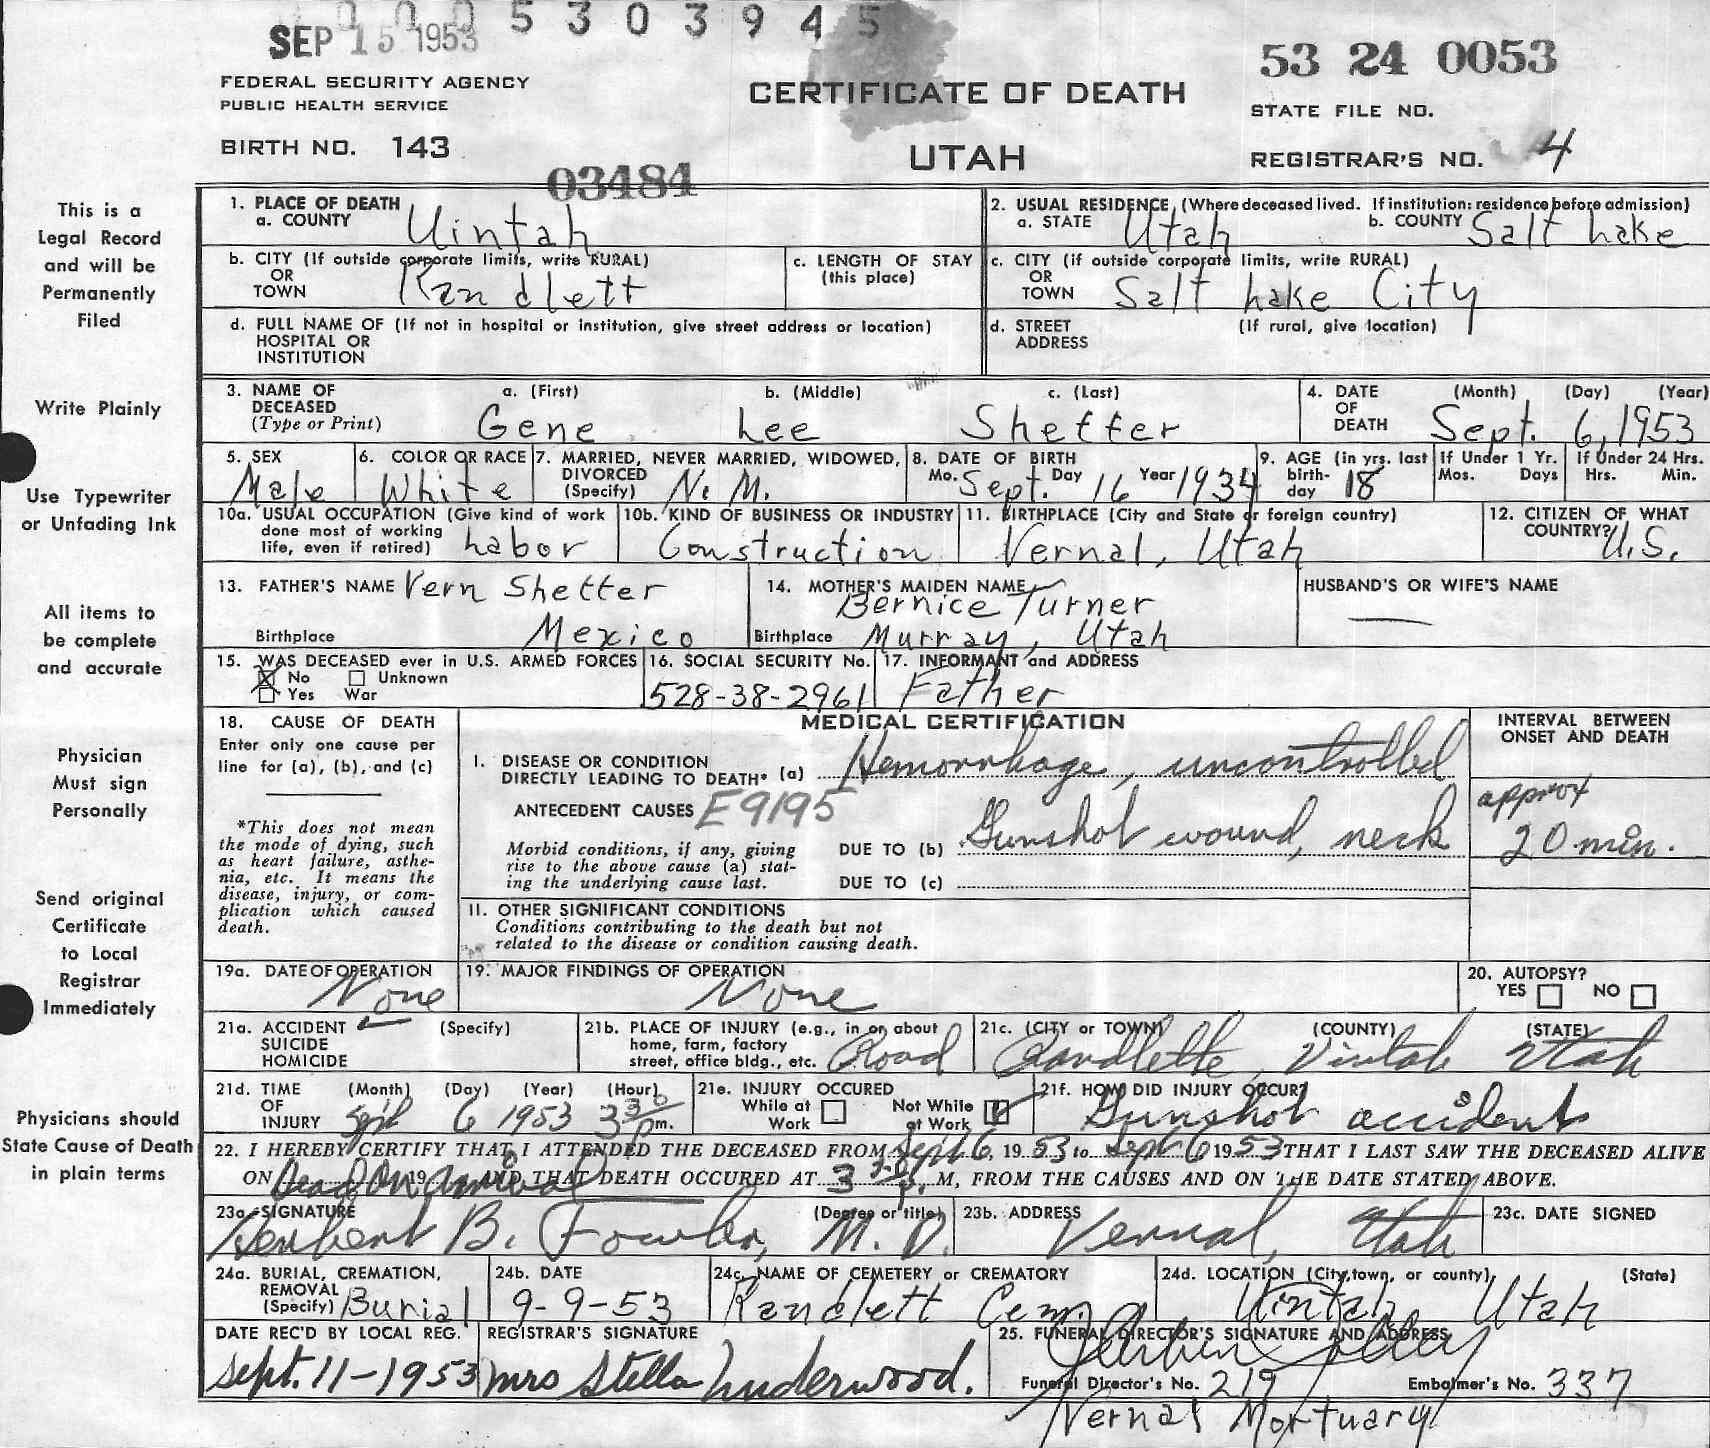 0005303945
SEP 15 1953
53 24 0053
FEDERAL SECURITY AGENCY
PUBLIC HEALTH SERVICE
CERTIFICATE OF DEATH
STATE FILE NO.
BIRTH NO. 143
UTAH
REGISTRAR'S NO. 4
03484
This is a
Legal Record
and will be
Permanently
Filed
Write Plainly
Use Typewriter
or Unfading Ink
All items to
be complete
and accurate
Physician
Must sign
Personally
Send original
Certificate
to Local
Registrar
Immediately
Physicians should
State Cause of Death
in plain terms
1. PLACE OF DEATH
a. COUNTY Uintah
2. USUAL RESIDENCE (Where deceased lived. If institution: residence before admission)
a. STATE Utah b. COUNTY Salt Lake
b. CITY (If outside corporate limits, write RURAL)
OR
TOWN Randlett
c. LENGTH OF STAY
(this place)
c. CITY (if outside corporate limits, write RURAL)
OR
TOWN Salt Lake City
d. FULL NAME OF (If not in hospital or institution, give street address or location)
HOSPITAL OR
INSTITUTION
d. STREET (If rural, give location)
ADDRESS
3. NAME OF a. (First) b. (Middle) c. (Last)
DECEASED
(Type or Print) Gene Lee Shetter
4. DATE (Month) (Day) (Year)
OF
DEATH Sept. 6, 1953
5. SEX
Male
6. COLOR OR RACE
White
7. MARRIED, NEVER MARRIED, WIDOWED,
DIVORCED
(Specify) N. M.
8. DATE OF BIRTH
Mo. Sept. Day 16 Year 1934
9. AGE (in yrs. last
birth-
day 18
If Under 1 Yr.
Mos. Days
If Under 24 Hrs.
Hrs. Min.
10a. USUAL OCCUPATION (Give kind of work
done most of working
life, even if retired) Labor
10b. KIND OF BUSINESS OR INDUSTRY
Construction
11. BIRTHPLACE (City and State or foreign country)
Vernal, Utah
12. CITIZEN OF WHAT
COUNTRY? U.S.
13. FATHER'S NAME Vern Shetter
Birthplace Mexico
14. MOTHER'S MAIDEN NAME
Bernice Turner
Birthplace Murray, Utah
HUSBAND'S OR WIFE'S NAME
—
15. WAS DECEASED ever in U.S. ARMED FORCES
No Unknown
Yes War
16. SOCIAL SECURITY No.
528-38-2961
17. INFORMANT and ADDRESS
Father
18. CAUSE OF DEATH
Enter only one cause per
line for (a), (b), and (c)
*This does not mean
the mode of dying, such
as heart failure, asthe-
nia, etc. It means the
disease, injury, or com-
plication which caused
death.
MEDICAL CERTIFICATION
I. DISEASE OR CONDITION
DIRECTLY LEADING TO DEATH* (a) Hemorrhage, uncontrolled
ANTECEDENT CAUSES E9195
Morbid conditions, if any, giving
rise to the above cause (a) stat-
ing the underlying cause last.
DUE TO (b) Gunshot wound, neck
DUE TO (c)
II. OTHER SIGNIFICANT CONDITIONS
Conditions contributing to the death but not
related to the disease or condition causing death.
INTERVAL BETWEEN
ONSET AND DEATH
approx
20 min.
19a. DATE OF OPERATION
None
19. MAJOR FINDINGS OF OPERATION
None
20. AUTOPSY?
YES NO
21a. ACCIDENT (Specify)
SUICIDE
HOMICIDE
21b. PLACE OF INJURY (e.g., in or about
home, farm, factory
street, office bldg., etc. Road
21c. (CITY or TOWN) (COUNTY) (STATE)
Randlette, Uintah Utah
21d. TIME (Month) (Day) (Year) (Hour)
OF
INJURY Sept 6 1953 3 30 pm.
21e. INJURY OCCURED
While at Not While
Work at Work
21f. HOW DID INJURY OCCUR?
Gunshot accident
22. I HEREBY CERTIFY THAT I ATTENDED THE DECEASED FROM Sept 6, 1953 to Sept 6 1953 THAT I LAST SAW THE DECEASED ALIVE
ON Dead On Arrival 19 AND THAT DEATH OCCURED AT 3 P. M, FROM THE CAUSES AND ON THE DATE STATED ABOVE.
23a. SIGNATURE (Degree or title)
Herbert B. Fowler, M. D.
23b. ADDRESS
Vernal, Utah
23c. DATE SIGNED
24a. BURIAL, CREMATION,
REMOVAL
(Specify) Burial
24b. DATE
9-9-53
24c. NAME OF CEMETERY or CREMATORY
Randlett Cem.
24d. LOCATION (City, town, or county) (State)
Uintah Utah
DATE REC'D BY LOCAL REG.
Sept. 11-1953
REGISTRAR'S SIGNATURE
Mrs Stella Underwood.
25. FUNERAL DIRECTOR'S SIGNATURE AND ADDRESS
Funeral Director's No. 219 Embalmer's No. 337
Vernal Mortuary